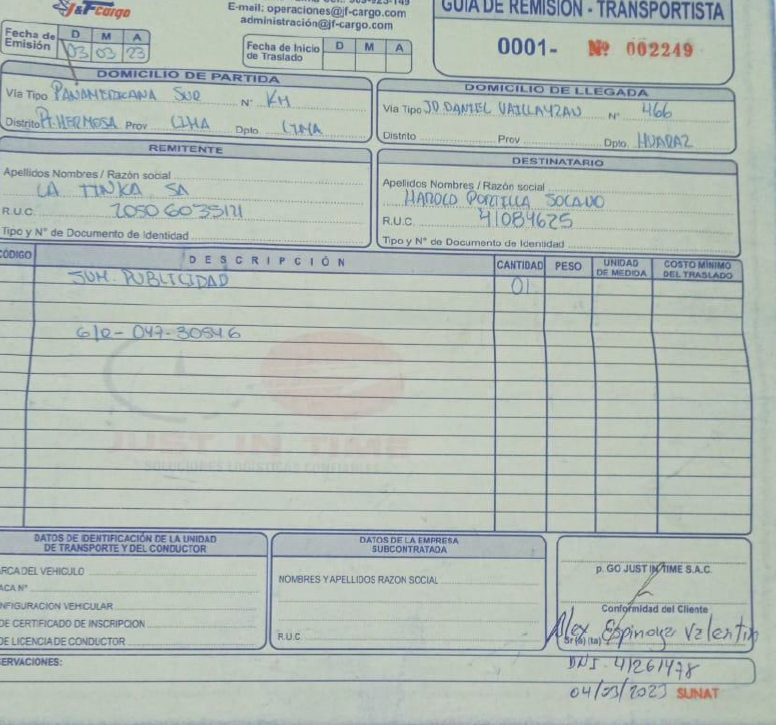 J&F Cargo
E-mail: operaciones@jf-cargo.com
administración@jf-cargo.com
GUIA DE REMISIÓN - TRANSPORTISTA
0001- Nº 002249
Fecha de Emisión D M A
03 03 23
Fecha de Inicio de Traslado D M A
DOMICILIO DE PARTIDA
Via Tipo PANAMERICANA SUR N° KM
Distrito Pt. HERMOSA Prov LIMA Dpto LIMA
DOMICILIO DE LLEGADA
Via Tipo JD. DANIEL N° 466
Distrito Prov Dpto. HUARAZ
REMITENTE
Apellidos Nombres / Razón social
LA TINKA SA
R.U.C. 20506035121
Tipo y N° de Documento de Identidad
DESTINATARIO
Apellidos Nombres / Razón social
HAROLD PORTILLA
R.U.C. 41084625
Tipo y N° de Documento de Identidad
CÓDIGO DESCRIPCIÓN CANTIDAD PESO UNIDAD DE MEDIDA COSTO MÍNIMO DEL TRASLADO
SUM. PUBLICIDAD 01
G/R - 047- 30546
JUST IN TIME
DATOS DE IDENTIFICACIÓN DE LA UNIDAD
DE TRANSPORTE Y DEL CONDUCTOR
ARCA DEL VEHICULO
ACA N°
NFIGURACION VEHICULAR
DE CERTIFICADO DE INSCRIPCION
DE LICENCIA DE CONDUCTOR
DATOS DE LA EMPRESA
SUBCONTRATADA
NOMBRES Y APELLIDOS RAZON SOCIAL
R.U.C
p. GO JUST IN TIME S.A.C.
Conformidad del Cliente
Sr (a) (ta) Alex Espinoza Valentin
DNI. 41261478
04/03/2023 SUNAT
ERVACIONES: